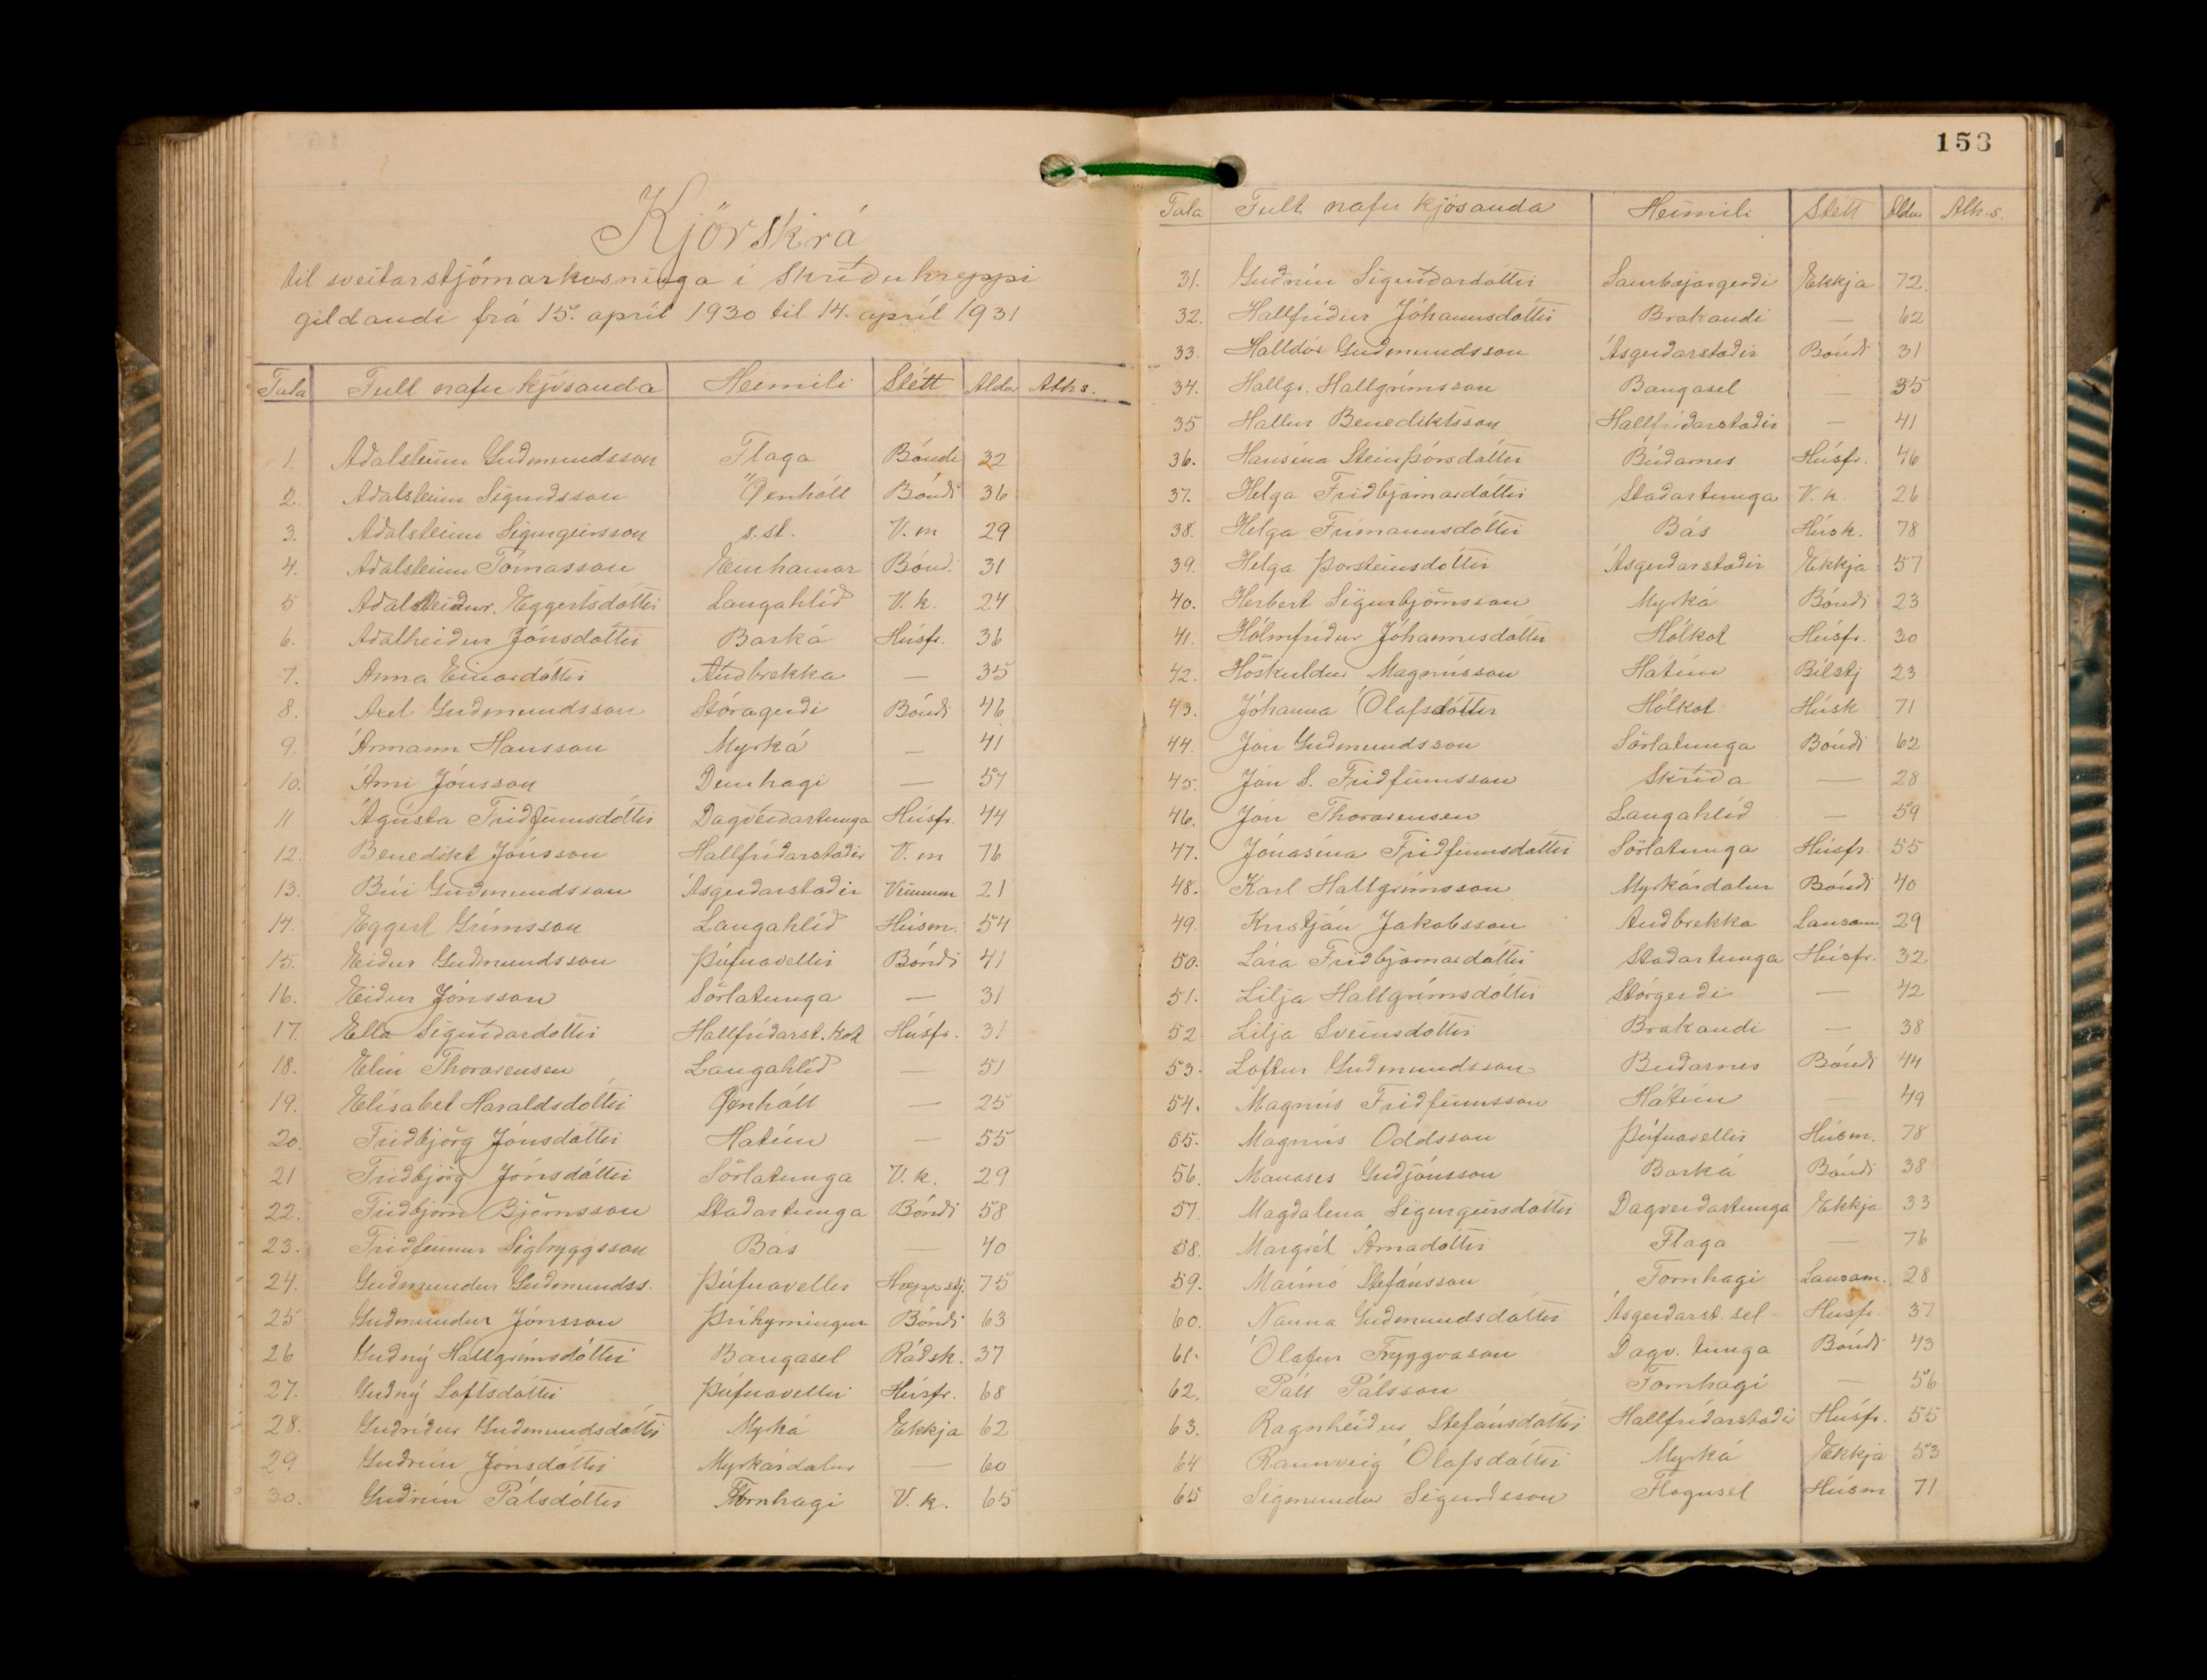 Kjörskrá
til sveitarstjórnarkosninga í Skriðuhreppi
gildandi frá 15. apríl 1930 til 14. apríl 1931
Tala Fullt nafn kjósanda Heimili Stétt Aldur Aths.
1. Aðalsteinn Guðmundsson Flaga Bóndi 32
2. Aðalsteinn Sigurðsson Öxnhóll Bóndi 36
3. Aðalsteinn Sigurgeirsson s.st. V.m 29
4. Aðalsteinn Tómasson Einhamar Bóndi 31
5 Aðalheiður Eggertsdóttir Langahlíð V.k. 24
6. Aðalheiður Jónsdóttir Barká Húsfr. 36
7. Anna Einarsdóttir Auðbrekka — 35
8. Axel Guðmundsson Stóragerði Bóndi 46
9. Ármann Hansson Myrká — 41
10. Árni Jónsson Dunhagi — 57
11. Ágústa Friðfinnsdóttir Dagverðartunga Húsfr. 44
12. Benedikt Jónsson Hallfríðarstaðir V.m 76
13. Búi Guðmundsson Ásgerðarstaðir Vinnum 21
14. Eggert Grímsson Langahlíð Húsm. 54
15. Eiður Guðmundsson Þúfnavellir Bóndi 41
16. Eiður Jónsson Sörlatunga — 31
17. Ella Sigurðardóttir Hallfríðarst.kot Húsfr. 31
18. Elín Thorarensen Langahlíð — 51
19. Elísabet Haraldsdóttir Öxnhóll — 25
20. Friðbjörg Jónsdóttir Hátún — 55
21 Friðbjörg Jónsdóttir Sörlatunga V.k. 29
22. Friðbjörn Björnsson Staðartunga Bóndi 58
23. Friðfinnur Sigtryggsson Bás — 40
24. Guðmundur Guðmundss. Þúfnavellir Hreppstj. 75
25 Guðmundur Jónsson Þríhyrningur Bóndi 63
26 Guðný Hallgrímsdóttir Baugasel Ráðsk. 37
27. Guðný Loftsdóttir Þúfnavellir Húsfr. 68
28. Guðríður Guðmundsdóttir Myrká Ekkja 62
29 Guðrún Jónsdóttir Myrkárdalur — 60
30. Guðrún Pálsdóttir Fornhagi V.k. 65
153
Tala Fullt nafn kjósanda Heimili Stétt Aldur Ath.s.
31. Guðrún Sigurðardóttir Lambajargerði Ekkja 72.
32. Hallfríður Jóhannsdóttir Brakandi — 62
33. Halldór Guðmundsson Ásgerðarstaðir Bóndi 31
34. Hallgr. Hallgrímsson Baugasel — 35
35 Hallur Benediktsson Hallfríðarstaðir — 41
36. Hansína Steinþórsdóttir Búðarnes Húsfr. 46
37. Helga Friðbjarnardóttir Staðartunga V.k. 26
38. Helga Frímannsdóttir Bás Húsk. 78
39. Helga Þorsteinsdóttir Ásgerðarstaðir Ekkja 57
40. Herbert Sigurbjörnsson Myrká Bóndi 23
41. Hólmfríður Jóhannesdóttir Hólkot Húsfr. 30
42. Höskuldur Magnússon Hátún Bílstj 23
43. Jóhanna Ólafsdóttir Hólkot Húsk 71
44. Jón Guðmundsson Sörlatunga Bóndi 62
45. Jón S. Friðfinnsson Skriða — 28
46. Jón Thorarensen Langahlíð — 59
47. Jónasína Friðfinnsdóttir Sörlatunga Húsfr. 55
48. Karl Hallgrímsson Myrkárdalur Bóndi 40
49. Kristján Jakobsson Auðbrekka Lausam 29
50. Lára Friðbjarnardóttir Staðartunga Húsfr. 32
51. Lilja Hallgrímsdóttir Stórgerði — 42
52 Lilja Sveinsdóttir Brakandi — 38
53. Loftur Guðmundsson Búðarnes Bóndi 44
54. Magnús Friðfinnsson Hátún — 49
55. Magnús Oddsson Þúfnavellir Húsm. 78
56. Manases Guðjónsson Barká Bóndi 38
57. Magdalena Sigurgeirsdóttir Dagverðartunga Ekkja 33
58. Margrét Árnadóttir Flaga — 76
59. Marinó Stefánsson Fornhagi Lausam. 28
60. Nanna Guðmundsdóttir Ásgerðarst. sel Húsfr. 37
61. Ólafur Tryggvason Dagv. tunga Bóndi 43
62. Páll Pálsson Fornhagi — 56
63. Ragnheiður Stefánsdóttir Hallfríðarstaðir Húsfr. 55
64 Rannveig Ólafsdóttir Myrká Ekkja 53
65 Sigmundur Sigurðsson Flögusel Húsm 71